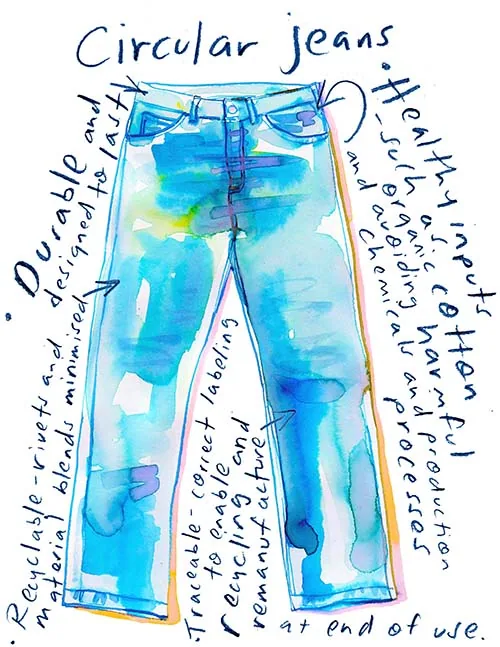 Circular jeans
• Durable and
designed to last
• Healthy inputs
- such as
organic cotton
and avoiding harmful
chemicals and production
processes
• Recyclable - rivets and
material blends minimised
• Traceable - correct labeling
to enable
recycling and
remanufacture
at end of use.